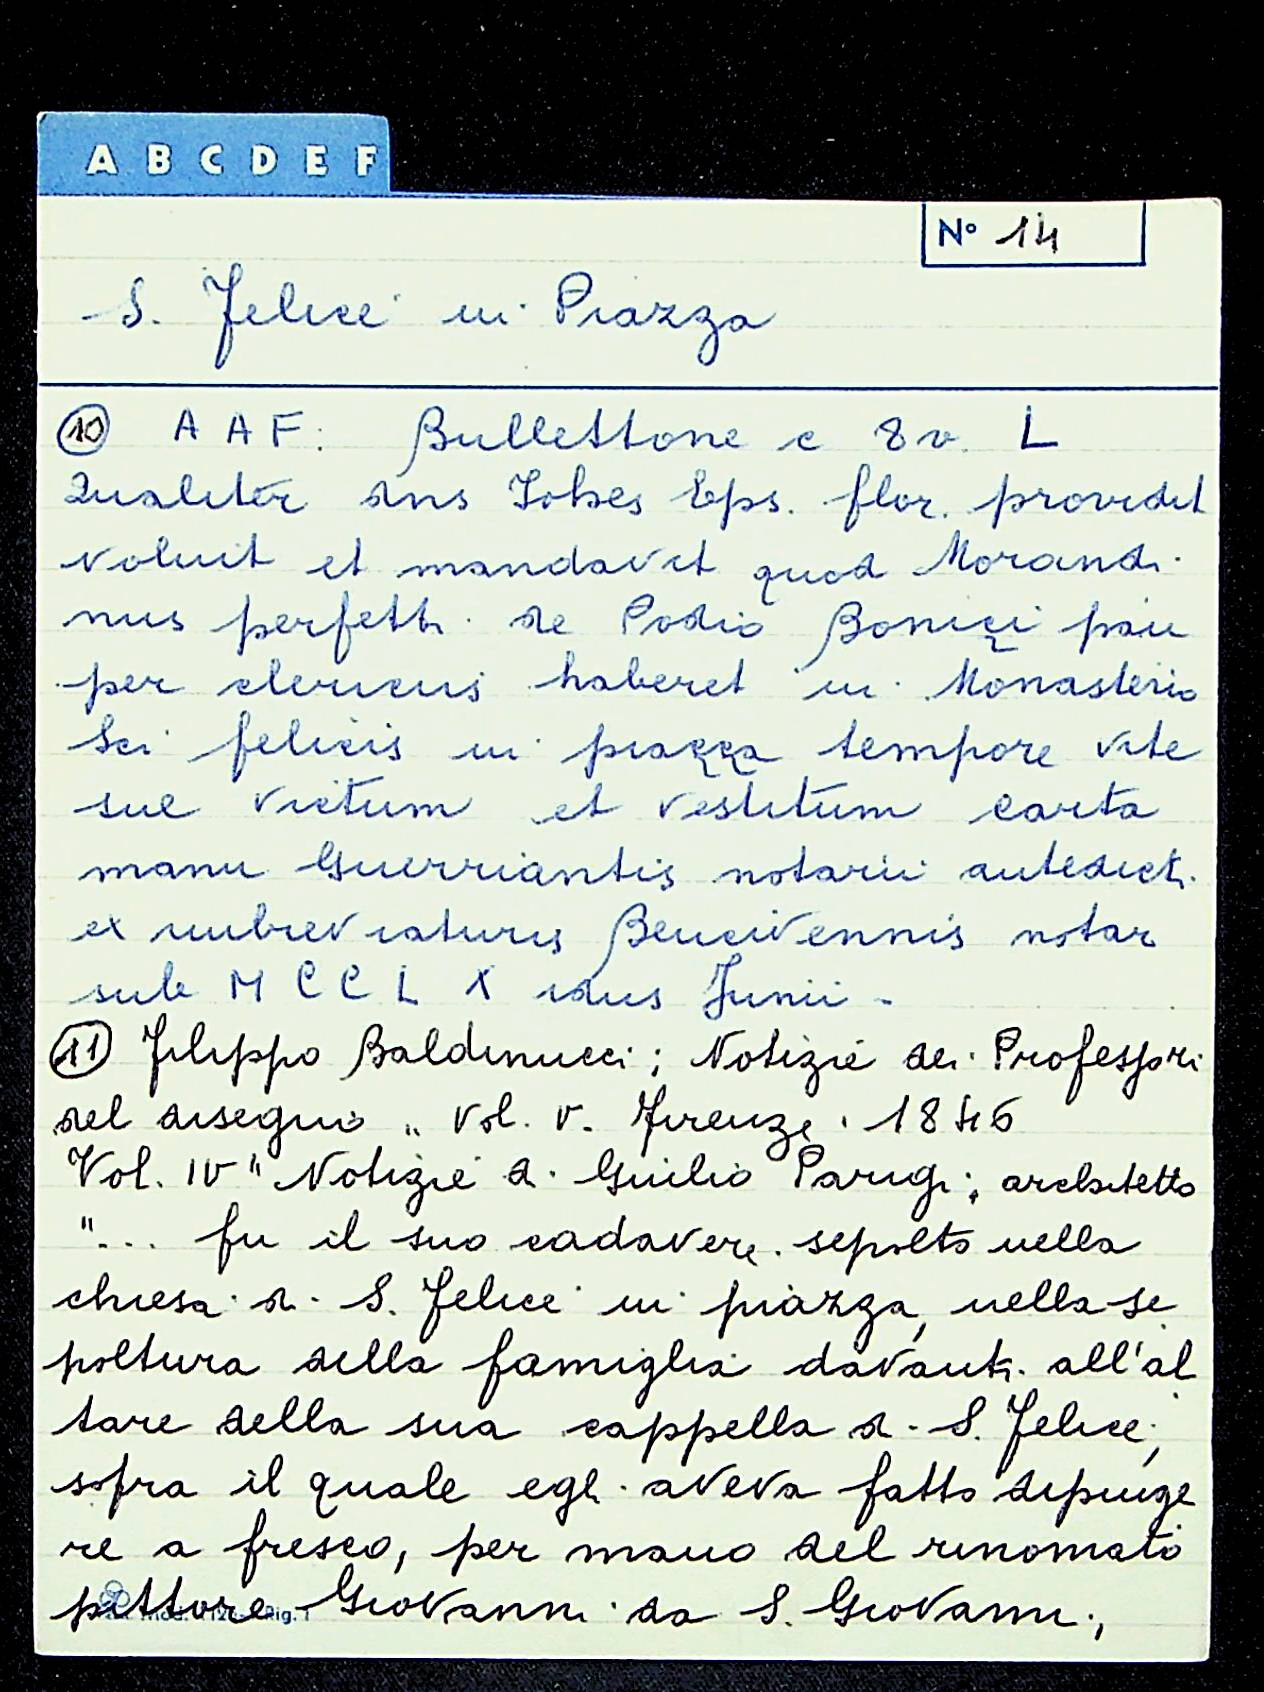 A B C D E F
N° 14
S. Felice in Piazza
10 A A F. Bullettone c 8 v. L
Qualiter dns Johes Eps. flor. providit
voluit et mandavit quod Morandi
nus perfetti de Podio Boniçi pau
per clericus haberet in Monasterio
Sci felicis in piaçça tempore vite
sue victum et vestitum carta
manu Guerriantis notarii antedicti
ex imbreviaturis Bencivennis notar
sub M C C L X idus Junii -
11 Filippo Baldinucci; Notizie dei Professori
del disegno " Vol. V. Firenze. 1846
Vol. IV " Notizie di Giulio Parigi; architetto
"... fu il suo cadavere sepolto nella
chiesa di S. Felice in piazza, nella se
poltura della famiglia davanti all'al
tare della sua cappella di S. Felice,
sopra il quale egli aveva fatto dipinge
re a fresco, per mano del rinomato
pittore Giovanni da S. Giovanni,